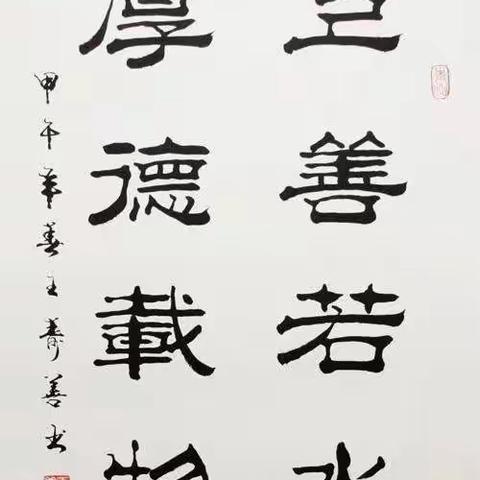 上善若水
厚德載物
甲午年 王寿善书